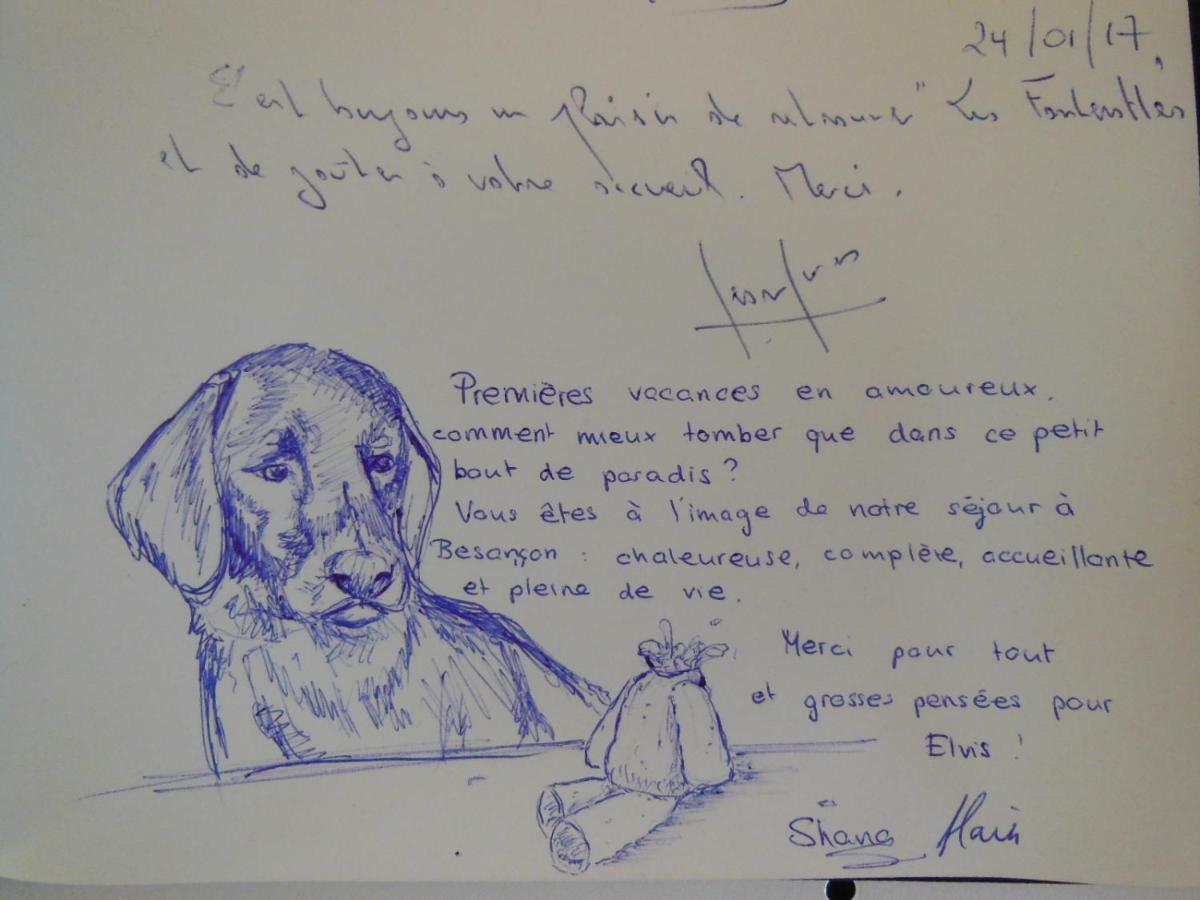 24/01/17,
C'est toujours un plaisir de retrouver "Les
et de goûter à votre accueil. Merci.
Premières vacances en amoureux.
comment mieux tomber que dans ce petit
bout de paradis ?
Vous êtes à l'image de notre séjour à
Besançon : chaleureuse, complète, accueillante
et pleine de vie.
Merci pour tout
et grosses pensées pour
Elvis !
Shana